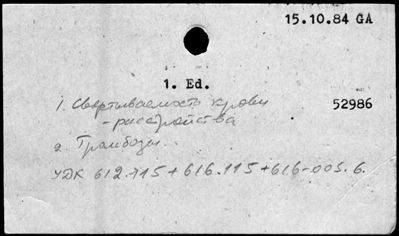 15.10.84 GA
1. Ed.
1. Свертываемость крови 52986
- расстройства
2. Тромбозы.
УДК 612.115+616.115+616-005.6.